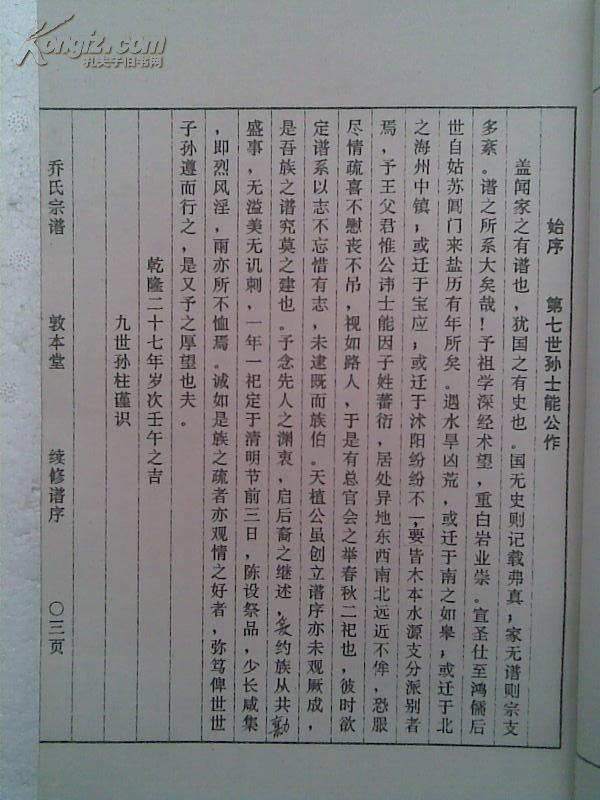 Kongfz.com
孔夫子旧书网
始序 第七世孙士能公作
盖闻家之有谱也，犹国之有史也。国无史则记载弗真；家无谱则宗支
多紊。谱之所系大矣哉！予祖学深经术望，重白岩业崇。宣圣仕至鸿儒后
世自姑苏阊门来盐历有年所矣。遇水旱凶荒，或迁于南之如皋；或迁于北
之海州中镇；或迁于宝应；或迁于沭阳纷纷不一，要皆木本水源支分派别者
焉，予王父君惟公讳士能因子姓蕃衍，居处异地东西南北远近不侔，恐服
尽情疏喜不慰丧不吊，视如路人，于是有总官会之举春秋二祀也，彼时欲
定谱系以志不忘惜有志，未逮既而族伯。天植公虽创立谱序亦未观厥成，
是吾族之谱究莫之建也。予念先人之渊衷，启后裔之继述，爰约族从共勷
盛事，无溢美无讥刺，一年一祀定于清明节前三日，陈设祭品，少长咸集
，即烈风淫，雨亦所不恤焉。诚如是族之疏者亦观情之好者，弥笃俾世世
子孙遵而行之，是又予之厚望也夫。
乾隆二十七年岁次壬午之吉
九世孙柱谨识
乔氏宗谱 敦本堂 续修谱序 〇三页